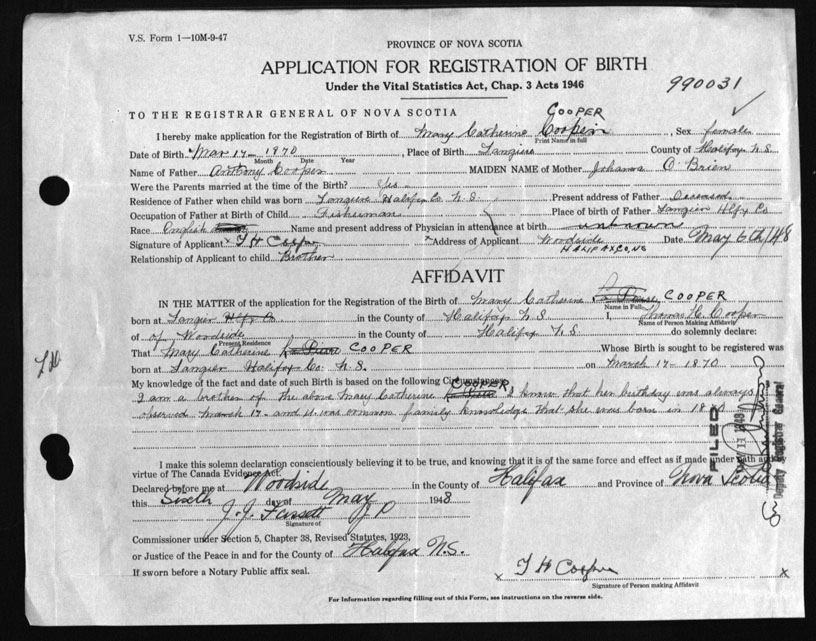 V.S. Form 1—10M-9-47
PROVINCE OF NOVA SCOTIA
APPLICATION FOR REGISTRATION OF BIRTH
Under the Vital Statistics Act, Chap. 3 Acts 1946
990031
TO THE REGISTRAR GENERAL OF NOVA SCOTIA
COOPER
I hereby make application for the Registration of Birth of Mary Catherine Cooper, Sex female
Print Name in full
Date of Birth Mar 17- 1870, Place of Birth Tangier County of Halifax N.S.
Month Date Year
Name of Father Anthony Cooper MAIDEN NAME of Mother Johanna O'Brien
Were the Parents married at the time of Birth? Yes
Residence of Father when child was born Tangier Halifax Co N.S. Present address of Father Deceased
Occupation of Father at Birth of Child Fisherman Place of birth of Father Tangier Hlfx Co
Race English Name and present address of Physician in attendance at birth unknown
Signature of Applicant x T H Cooper x Address of Applicant Woodside Date May 6th/48
HALIFAX CO, NS
Relationship of Applicant to child Brother
AFFIDAVIT
IN THE MATTER of the application for the Registration of the Birth of Mary Catherine COOPER
Name in Full
born at Tangier Hlfx Co in the County of Halifax N S I, Thomas H. Cooper
Name of Person Making Affidavit
of of Woodside in the County of Halifax N.S. do solemnly declare:
Present Residence
That Mary Catherine COOPER Whose Birth is sought to be registered was
born at Tangier Halifax Co. N.S. on March 17- 1870
My knowledge of the fact and date of such Birth is based on the following Circumstances:
COOPER,
I am a brother of the above Mary Catherine I know that her birthday was always
observed March 17- and it was common family knowledge that she was born in 1870
I make this solemn declaration conscientiously believing it to be true, and knowing that it is of the same force and effect as if made under oath and by
virtue of The Canada Evidence Act.
Declared before me at Woodside in the County of Halifax and Province of Nova Scotia
this Sixth day of May 1948
J. J. Fassett J P
Signature of
Commissioner under Section 5, Chapter 38, Revised Statutes, 1923,
or Justice of the Peace in and for the County of Halifax N.S.
If sworn before a Notary Public affix seal.
x T H Cooper x
Signature of Person making Affidavit
For Information regarding filling out of this Form, see instructions on the reverse side.
FILED
1948
Deputy Registrar General